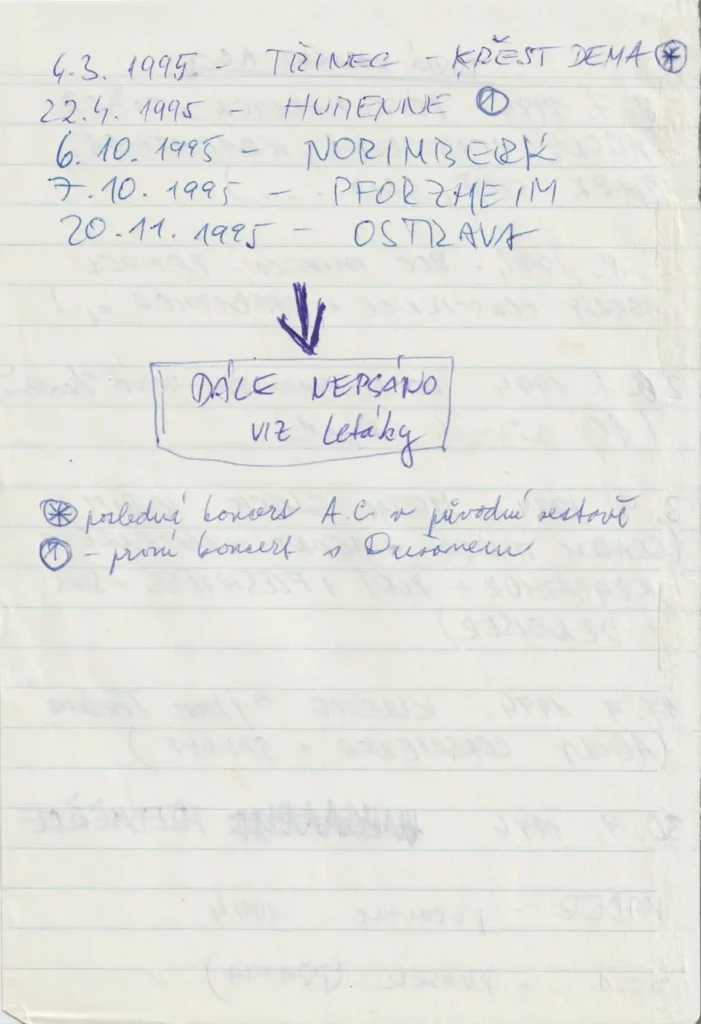 4.3. 1995 - TŘINEC - KŘEST DEMA *
22.4. 1995 - HUMENNE 1
6.10. 1995 - NORIMBERK
7.10. 1995 - PFORZHEIM
20.11. 1995 - OSTRAVA
DÁLE NEPSÁNO
VIZ letáky
* poslední koncert A.C. v původní sestavě
1 - první koncert s Dušanem